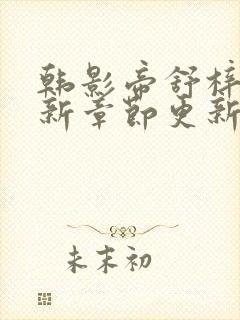 韩影帝舒梓
新章节更新
未末初